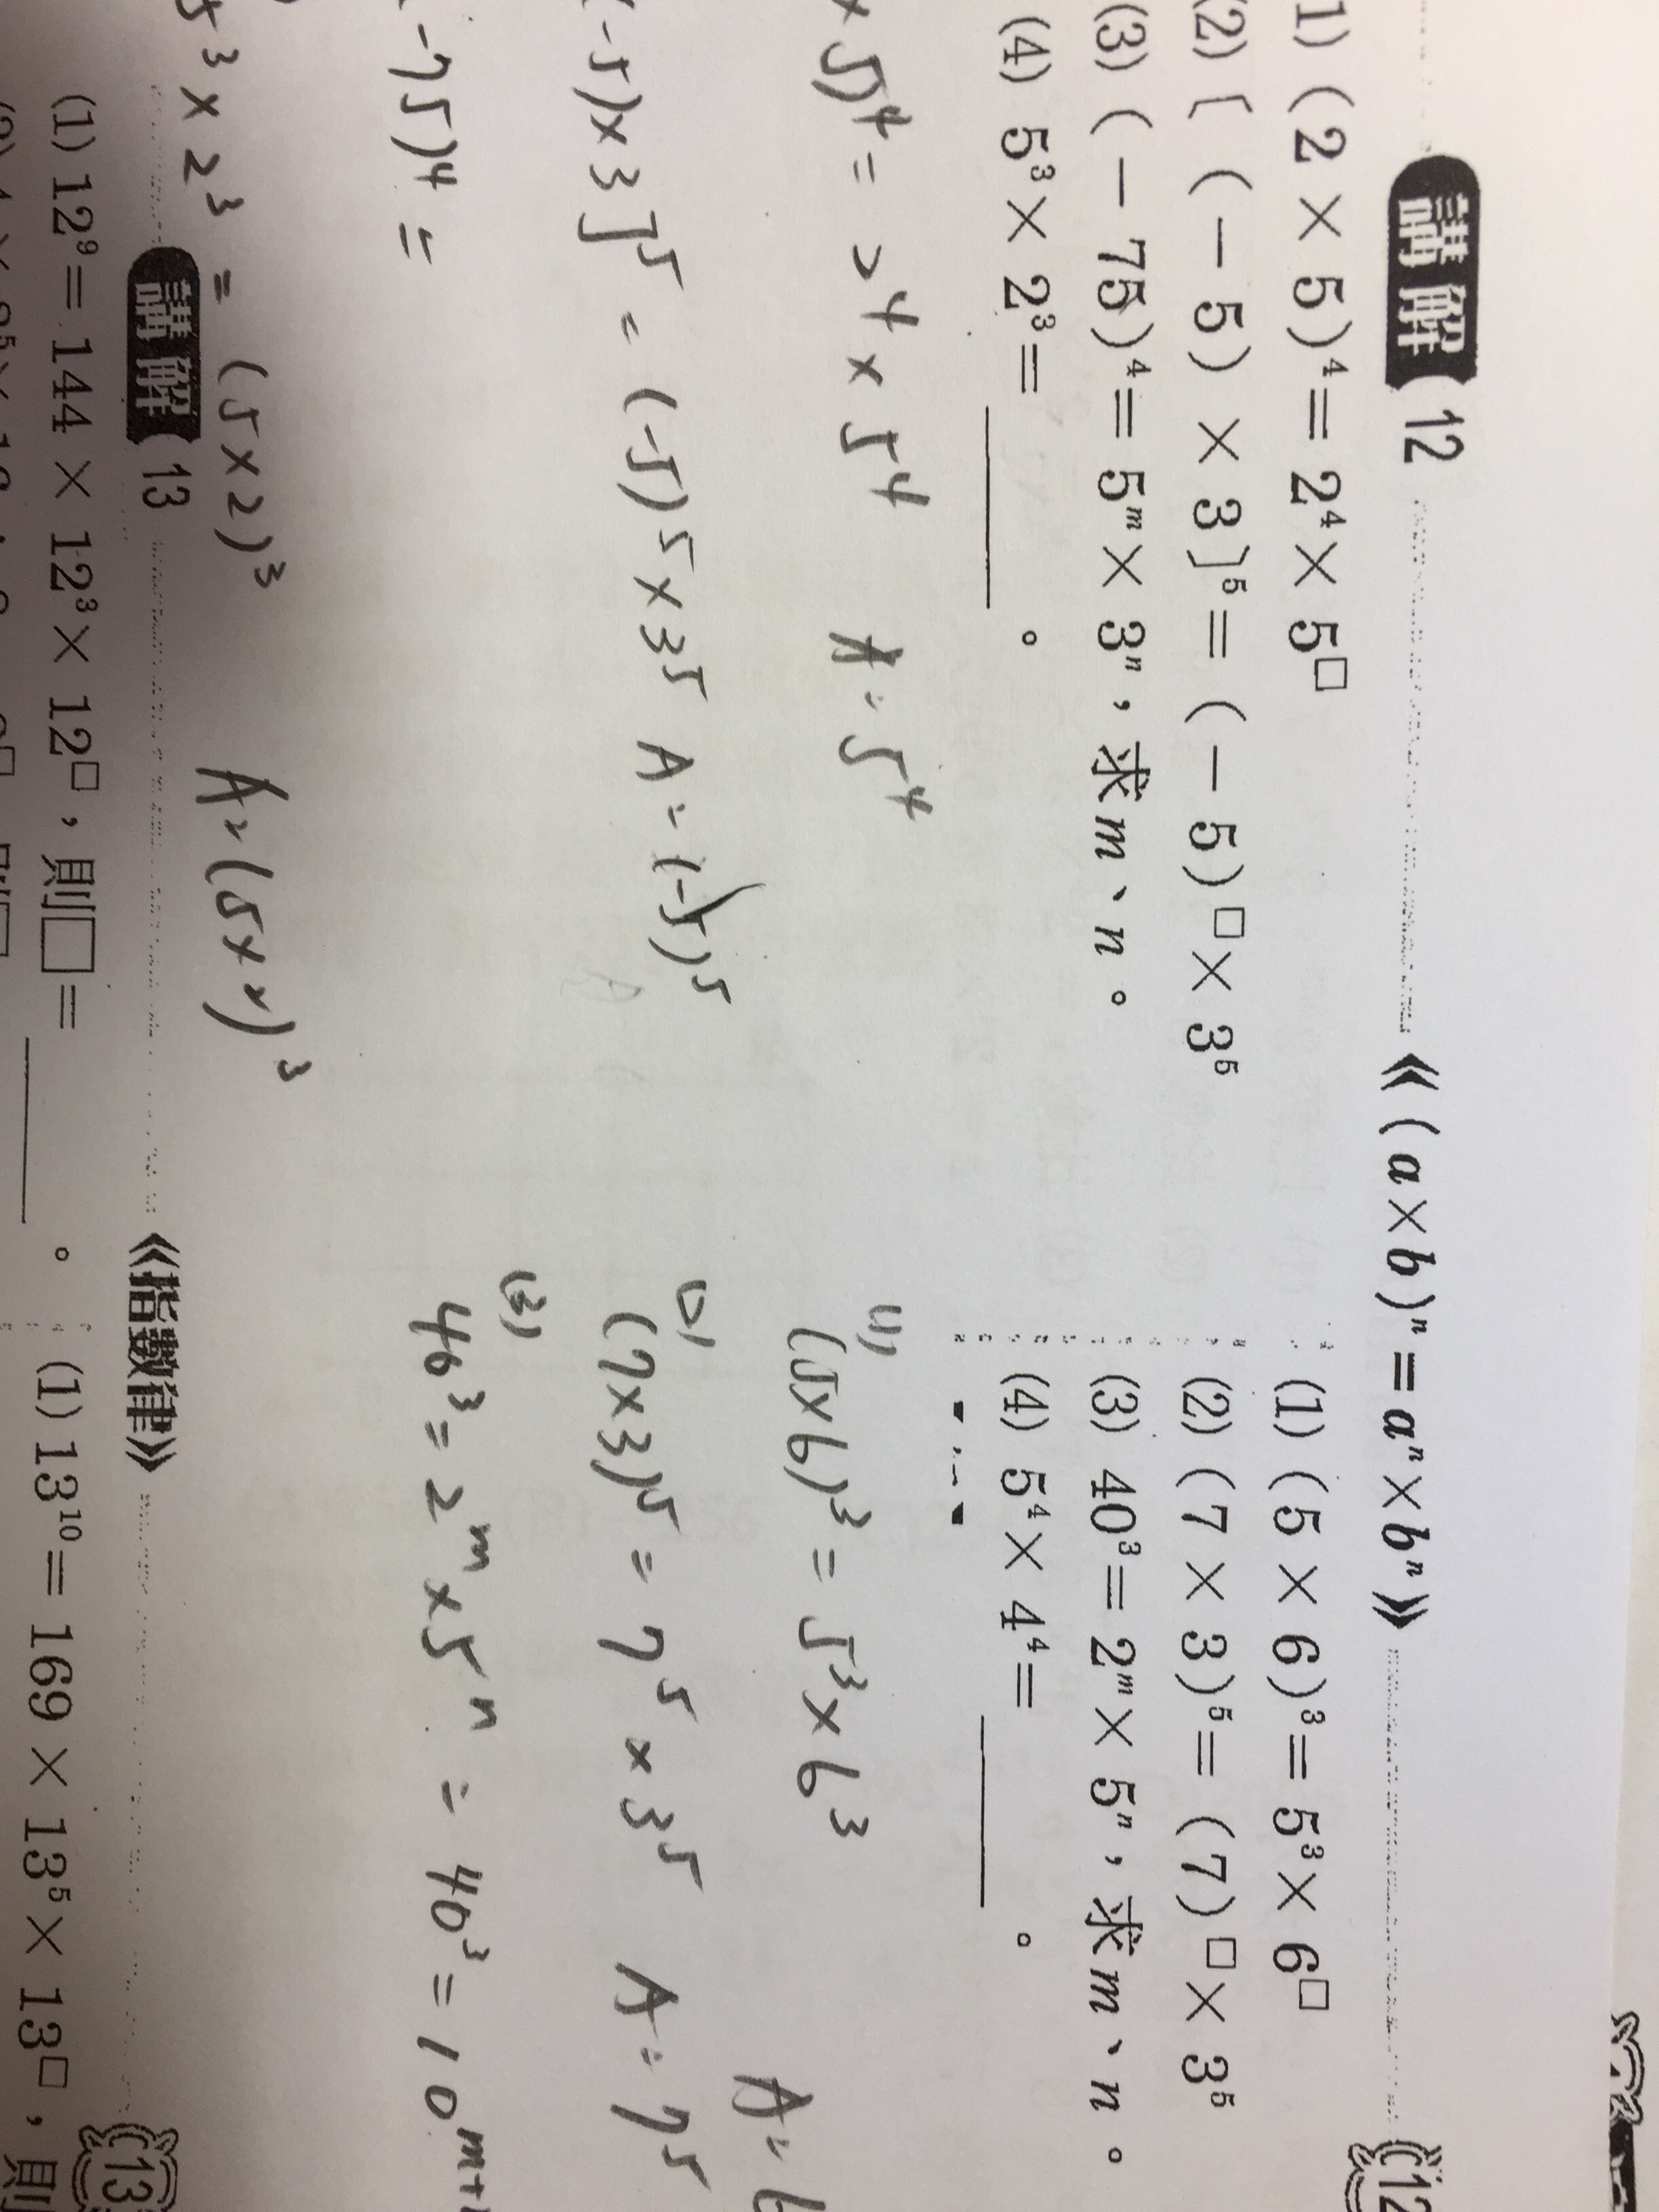 講解 12 《(a×b)ⁿ=aⁿ×bⁿ》
1) (2×5)⁴=2⁴×5□
(2) 〔(-5)×3〕⁵=(-5)□×3⁵
(3) (-75)⁴=5ᵐ×3ⁿ，求m、n。
(4) 5³×2³=______。
×5)⁴=2⁴×5⁴ A=5⁴
(-5)×3]⁵=(-5)⁵×3⁵ A=(-5)⁵
(-75)⁴=
5³×2³=(5×2)³ A=(5×2)³
(12
(1) (5×6)³=5³×6□
(2) (7×3)⁵=(7)□×3⁵
(3) 40³=2ᵐ×5ⁿ，求m、n。
(4) 5⁴×4⁴=______。
(1)
(5×6)³=5³×6³ A=6
(2)
(7×3)⁵=7⁵×3⁵ A=7⁵
(3)
40³=2ᵐ×5ⁿ=40³=10ᵐ⁺
講解 13 《指數律》
(1) 12⁹=144×12³×12□，則□=______。
(13
(1) 13¹⁰=169×13⁵×13□，則